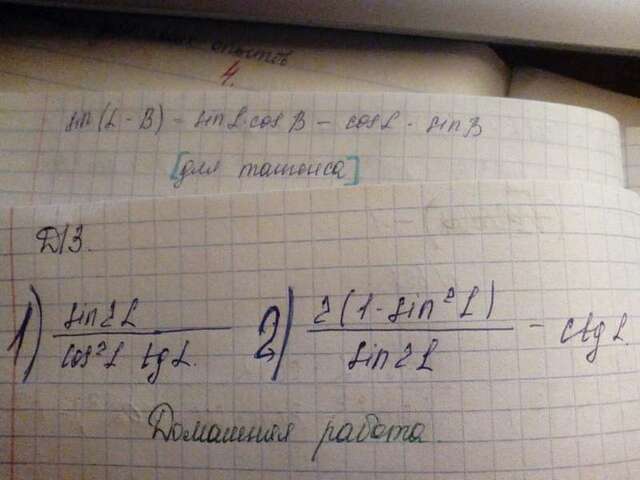 опытов
4.
sin(L - B) = sinL·cosB - cosL · sinB
[для тангенса]
Д/З.
1) sin2L / cos²L tgL.
2) 2(1-sin²L) / sin2L - ctgL.
Домашняя работа.